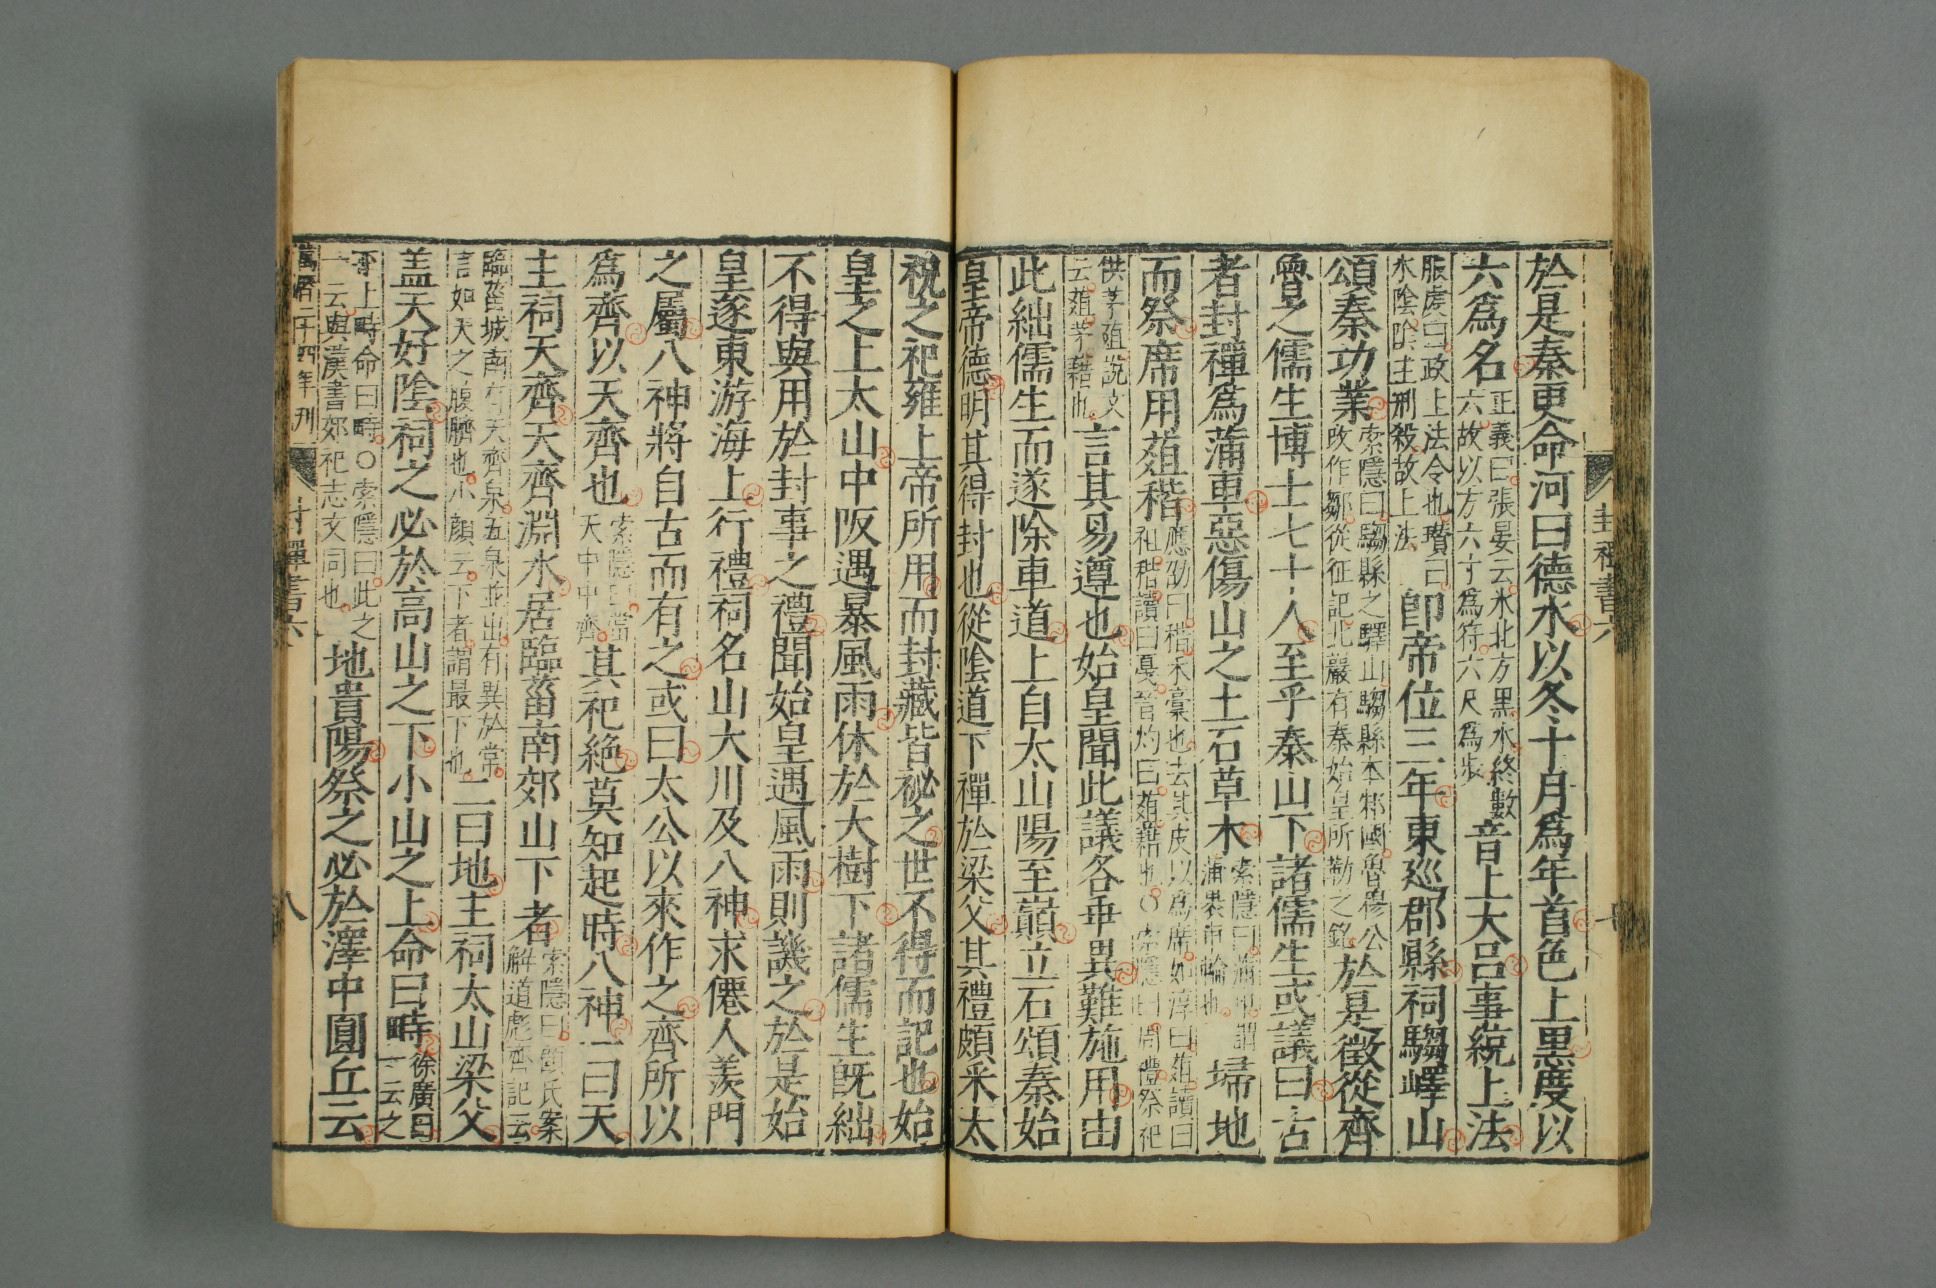 封禪書六
於是秦更命河曰德水以冬十月爲年首色上黑度以
六爲名正義曰張晏云水北方黑水終數六故以方六寸爲符六尺爲步音上大呂事統上法
服虔曰政上法令也瓚曰水陰陰主刑殺故上法即帝位三年東廵郡縣祠騶嶧山
頌秦功業索隱曰騶縣之嶧山騶縣本邾國魯穆公改作鄒從征記北巖有秦始皇所勒之銘於是徵從齊
魯之儒生博士七十人至乎泰山下諸儒生或議曰古
者封禪爲蒲車惡傷山之土石草木索隱曰蒲車謂蒲裹車輪也埽地
而祭席用葅稭應劭曰稭禾稾也去其皮以爲席如淳曰葅讀曰租稭讀曰戛晉灼曰葅藉也○索隱曰周禮祭祀
供茅葅說文云葅茅藉也言其易遵也始皇聞此議各乖異難施用由
此絀儒生而遂除車道上自太山陽至巔立石頌秦始
皇帝德明其得封也從陰道下禪於梁父其禮頗采太
祝之祀雍上帝所用而封藏皆祕之世不得而記也始
皇之上太山中阪遇暴風雨休於大樹下諸儒生旣絀
不得與用於封事之禮聞始皇遇風雨則譏之於是始
皇遂東游海上行禮祠名山大川及八神求僊人羨門
之屬八神將自古而有之或曰太公以來作之齊所以
爲齊以天齊也索隱曰當天中央齊其祀絶莫知起時八神一曰天
主祠天齊天齊淵水居臨菑南郊山下者索隱曰顧氏案解道彪齊記云
臨菑城南有天齊泉五泉並出有異於常言如天之腹臍也小顏云下者謂最下也二曰地主祠太山梁父
盖天好陰祠之必於高山之下小山之上命曰畤徐廣曰一云之
下上畤命曰畤○索隱曰此之一云與漢書郊祀志文同也地貴陽祭之必於澤中圓丘云
萬曆二十四年刊
封禪書六
八